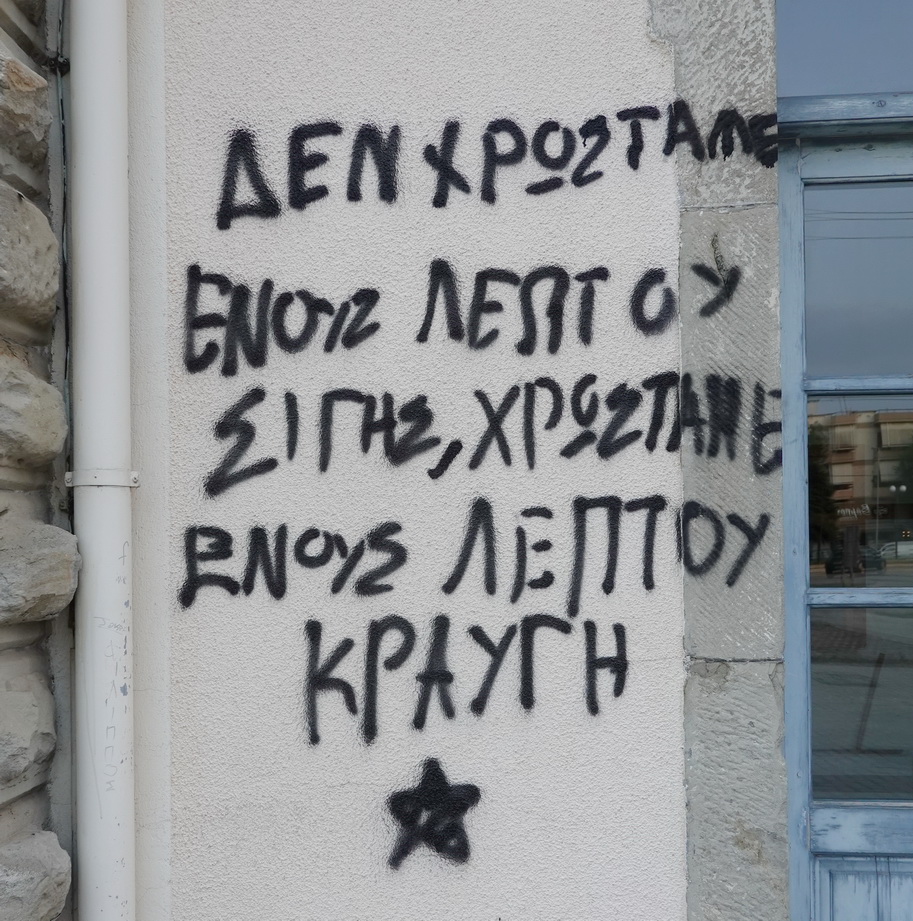 ΔΕΝ ΧΡΩΣΤΑΜΕ
ΕΝΟΥΣ ΛΕΠΤΟΥ
ΣΙΓΗΣ, ΧΡΩΣΤΑΜΕ
ΕΝΟΥΣ ΛΕΠΤΟΥ
ΚΡΑΥΓΗ